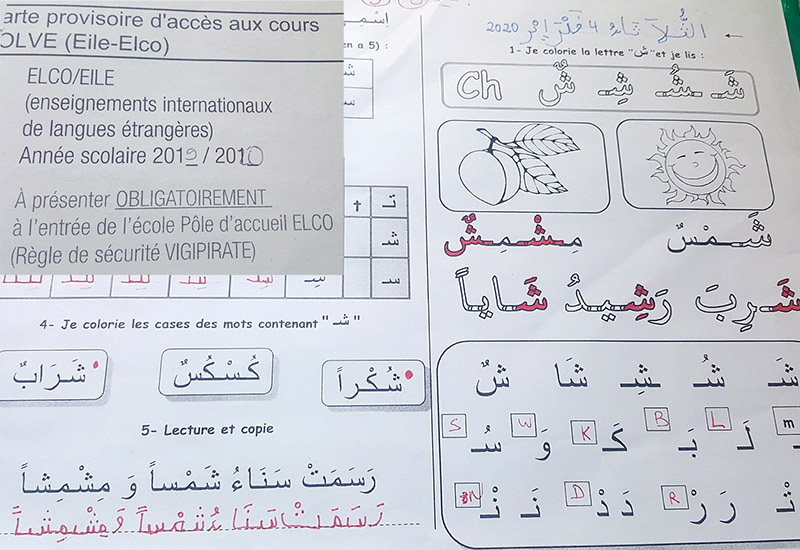 arte provisoire d'accès aux cours
OLVE (Eile-Elco)
ELCO/EILE
(enseignements internationaux
de langues étrangères)
Année scolaire 2019 / 2010
À présenter OBLIGATOIREMENT
à l'entrée de l'école Pôle d'accueil ELCO
(Règle de sécurité VIGIPIRATE)
en a 5) :
شـ
سـ
تـ
شـ
سـ
4- Je colorie les cases des mots contenant "شـ"
شُكْراً
كُسْكُسٌ
شَرَابٌ
5- Lecture et copie
رَسَمَتْ سَنَاءُ شَمْساً وَ مِشْمِشاً
رَسَمَتْ سَنَاءُ شَمْساً وَ مِشْمِشاً
الثُّلاَثَاءُ 4 فَبْرَايِر 2020
1- Je colorie la lettre "ش" et je lis :
شَـ شُـ شِـ شٌ Ch
شَـمْسٌ
مِـشْـمِـشٌ
شَـرِبَ رَشِـيدُ شَـاياً
شَـ شُـ شِـ شَا شٌ
m لَـ L بَـ B كَـ K وَ W سُـ S
رَ رْ R دَ دْ D نَـ نْـ N